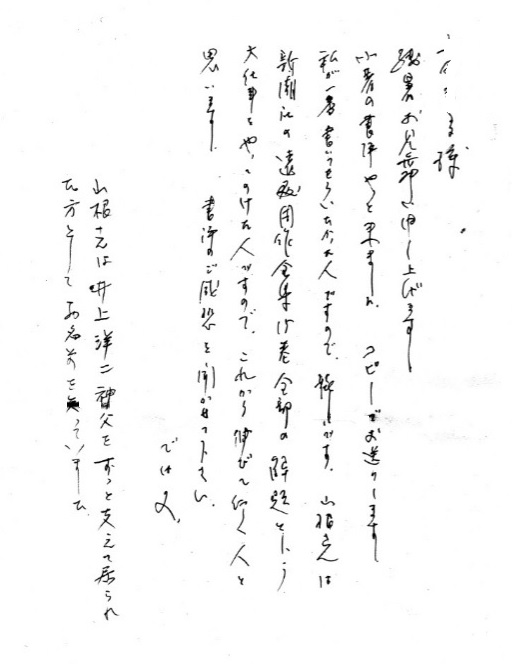 様
残暑お見舞い申し上げます。
小著の書評やっと来ました。コピーをお送りします。
私が一番書いてもらいたかった人ですので、嬉しいです。山根さんは
新潮社の遠藤周作全集15巻全部の解題という
大仕事をやってのけた人ですので、これから伸びて行く人と
思います。書評のご感想を聞かせて下さい。
ではまた、
山根さんは井上洋二神父をずっと支えて居られ
た方としてお名前を知っていました。